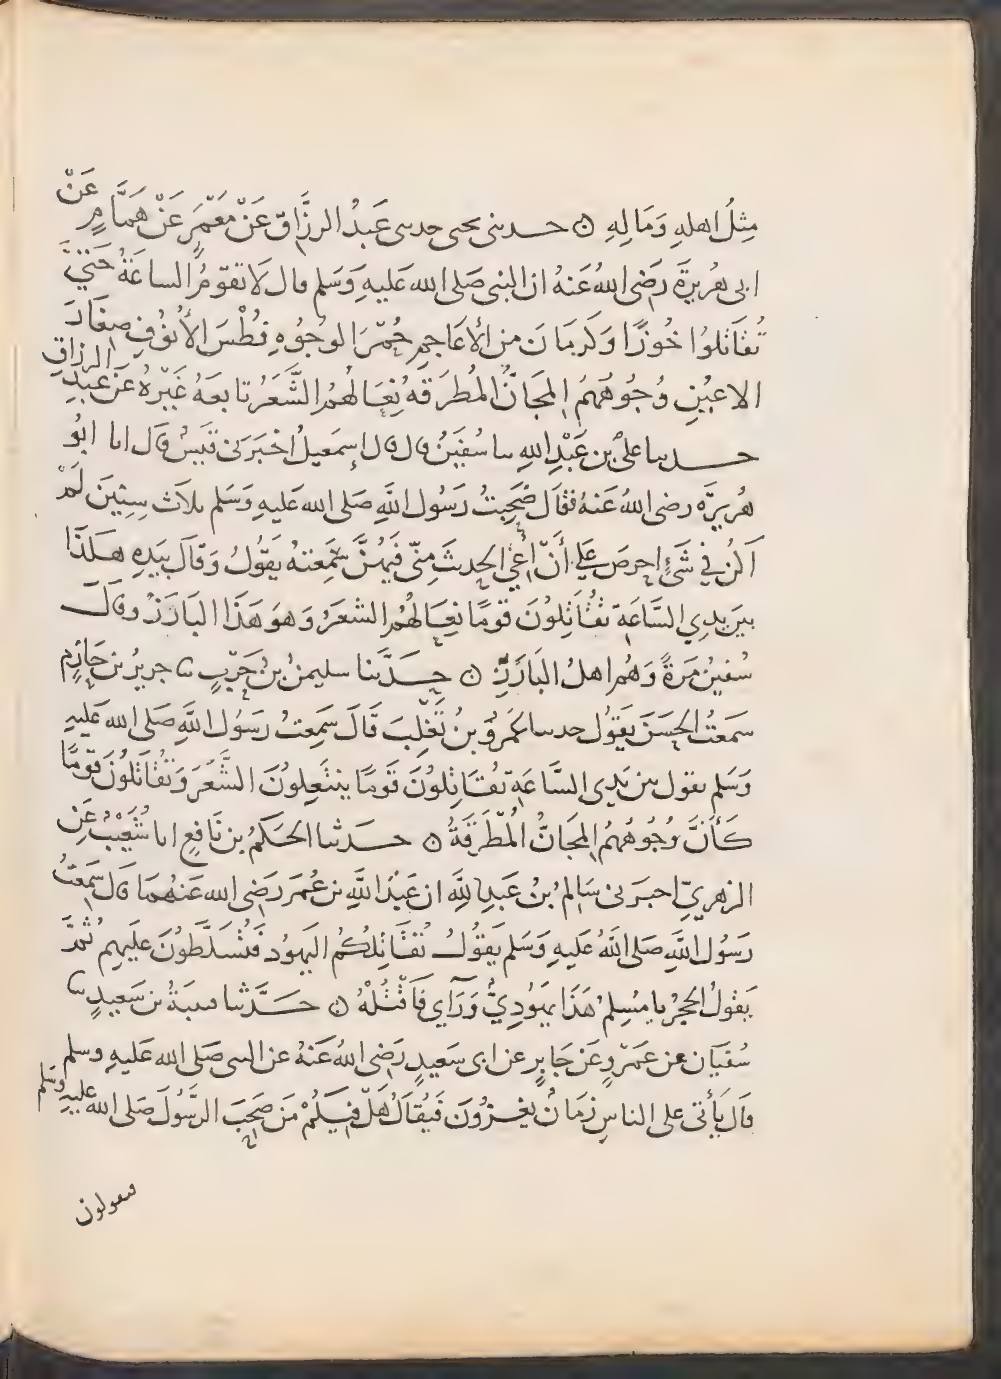 مِثْلُ اهلِهِ وَمَالِهِ ۝ حدثنى يحيى حدثنى عَبدُ الرزَّاق عَنْ مَعْمَرٍ عَنْ هَمَّامٍ عَنْ
ابى هُرَيرَةَ رَضِى اللهُ عَنهُ ان النبى صَلى الله عَليهِ وَسَلم قال لَا تقوْمُ الساعَةُ حَتَّى
تُقَاتلوُا خُوْزًا وَكَرمَانَ من الأَعَاجِمِ حُمْرَ الوُجُوْهِ فُطْسَ الأنوُفِ صِغَارَ
الاعيُنِ وُجُوهُهُمُ المجَانُّ المُطرَقَةُ نِعَالهُمُ الشَّعَرُ تابعَهُ غَيْرُهُ عَن عَبدِ الرزاقِ
حدثنا علىُّ بن عَبْدِ اللهِ سا سُفيَنُ قال قال إسمعيلُ اخبَرَنى قيسٌ قال انا ابُو
هُرَيرَةَ رضى اللهُ عَنهُ فقَال صَحِبتُ رَسُول اللَّهِ صَلى الله عَليهِ وَسَلم ثلاث سِنِينَ لَمْ
اكن فى شَىْءٍ احرصَ عَلى أنْ أَعِيَ الحديثَ مِنّى فيهِنَّ سَمِعتهُ يقُولُ وَقالَ بيَدِهِ هكذَا
بين يدىِ السَّاعَةِ تُقَاتِلوُنَ قومًا نِعَالهُم الشعَرُ وَهوَ هَذَا البَارَزُ وقَالَ
سُفينُ مَرةً وَهُم اهلُ البَارَزِ ۝ حدَّثنا سليمنُ بنُ حَرْبٍ سا جريرُ بن حَازِمٍ
سَمعتُ الحَسَنَ يَقول حدسا عَمْرُو بنُ تَغْلِبَ قَالَ سَمِعتُ رَسُول اللَّهِ صَلى الله عَليهِ
وَسَلم يقول بين يَدىِ السَّاعَةِ تُقَاتِلوُنَ قَومًا ينتَعِلوُنَ الشَّعَرَ وَتُقَاتلوُنَ قومًا
كَأَنَّ وُجُوهَهُمُ المجَانُّ المُطْرَقَةُ ۝ حدَثنا الحَكَمُ بن نَافِعٍ انا شُعَيْبٌ عَنِ
الزهرىِّ اخبرَنى سَالمُ بنُ عَبدِ اللَّهِ ان عَبْدَ اللَّهِ بن عُمَرَ رَضِى الله عَنهُمَا قال سَمِعْتُ
رَسُول اللَّهِ صَلى اللَّهُ عَليهِ وَسَلم يَقُولُ تُقَاتِلكُمُ اليَهُود فَتُسَلَّطوُنَ عَليهِم ثُمَّ
يَقولُ الحجرُ يا مُسِلمُ هَذَا يَهُودِيٌّ وَرَآىِ فَاقْتُلْهُ ۝ حَدَّثنا قتيبَةُ بن سَعِيدٍ سا
سُفيَان عن عَمْرٍو عَن جَابِرٍ عن ابى سَعيدٍ رَضِى اللهُ عَنهُ عن النبى صَلى الله عَليهِ وسَلم
قَالَ يَأتى عَلى الناسِ زمَانٌ يَغزُونَ فَيُقَالُ هَلْ فِيكُمْ مَن صَحِبَ الرسُولَ صَلى الله عَليهِ وسَلم
فيقولون